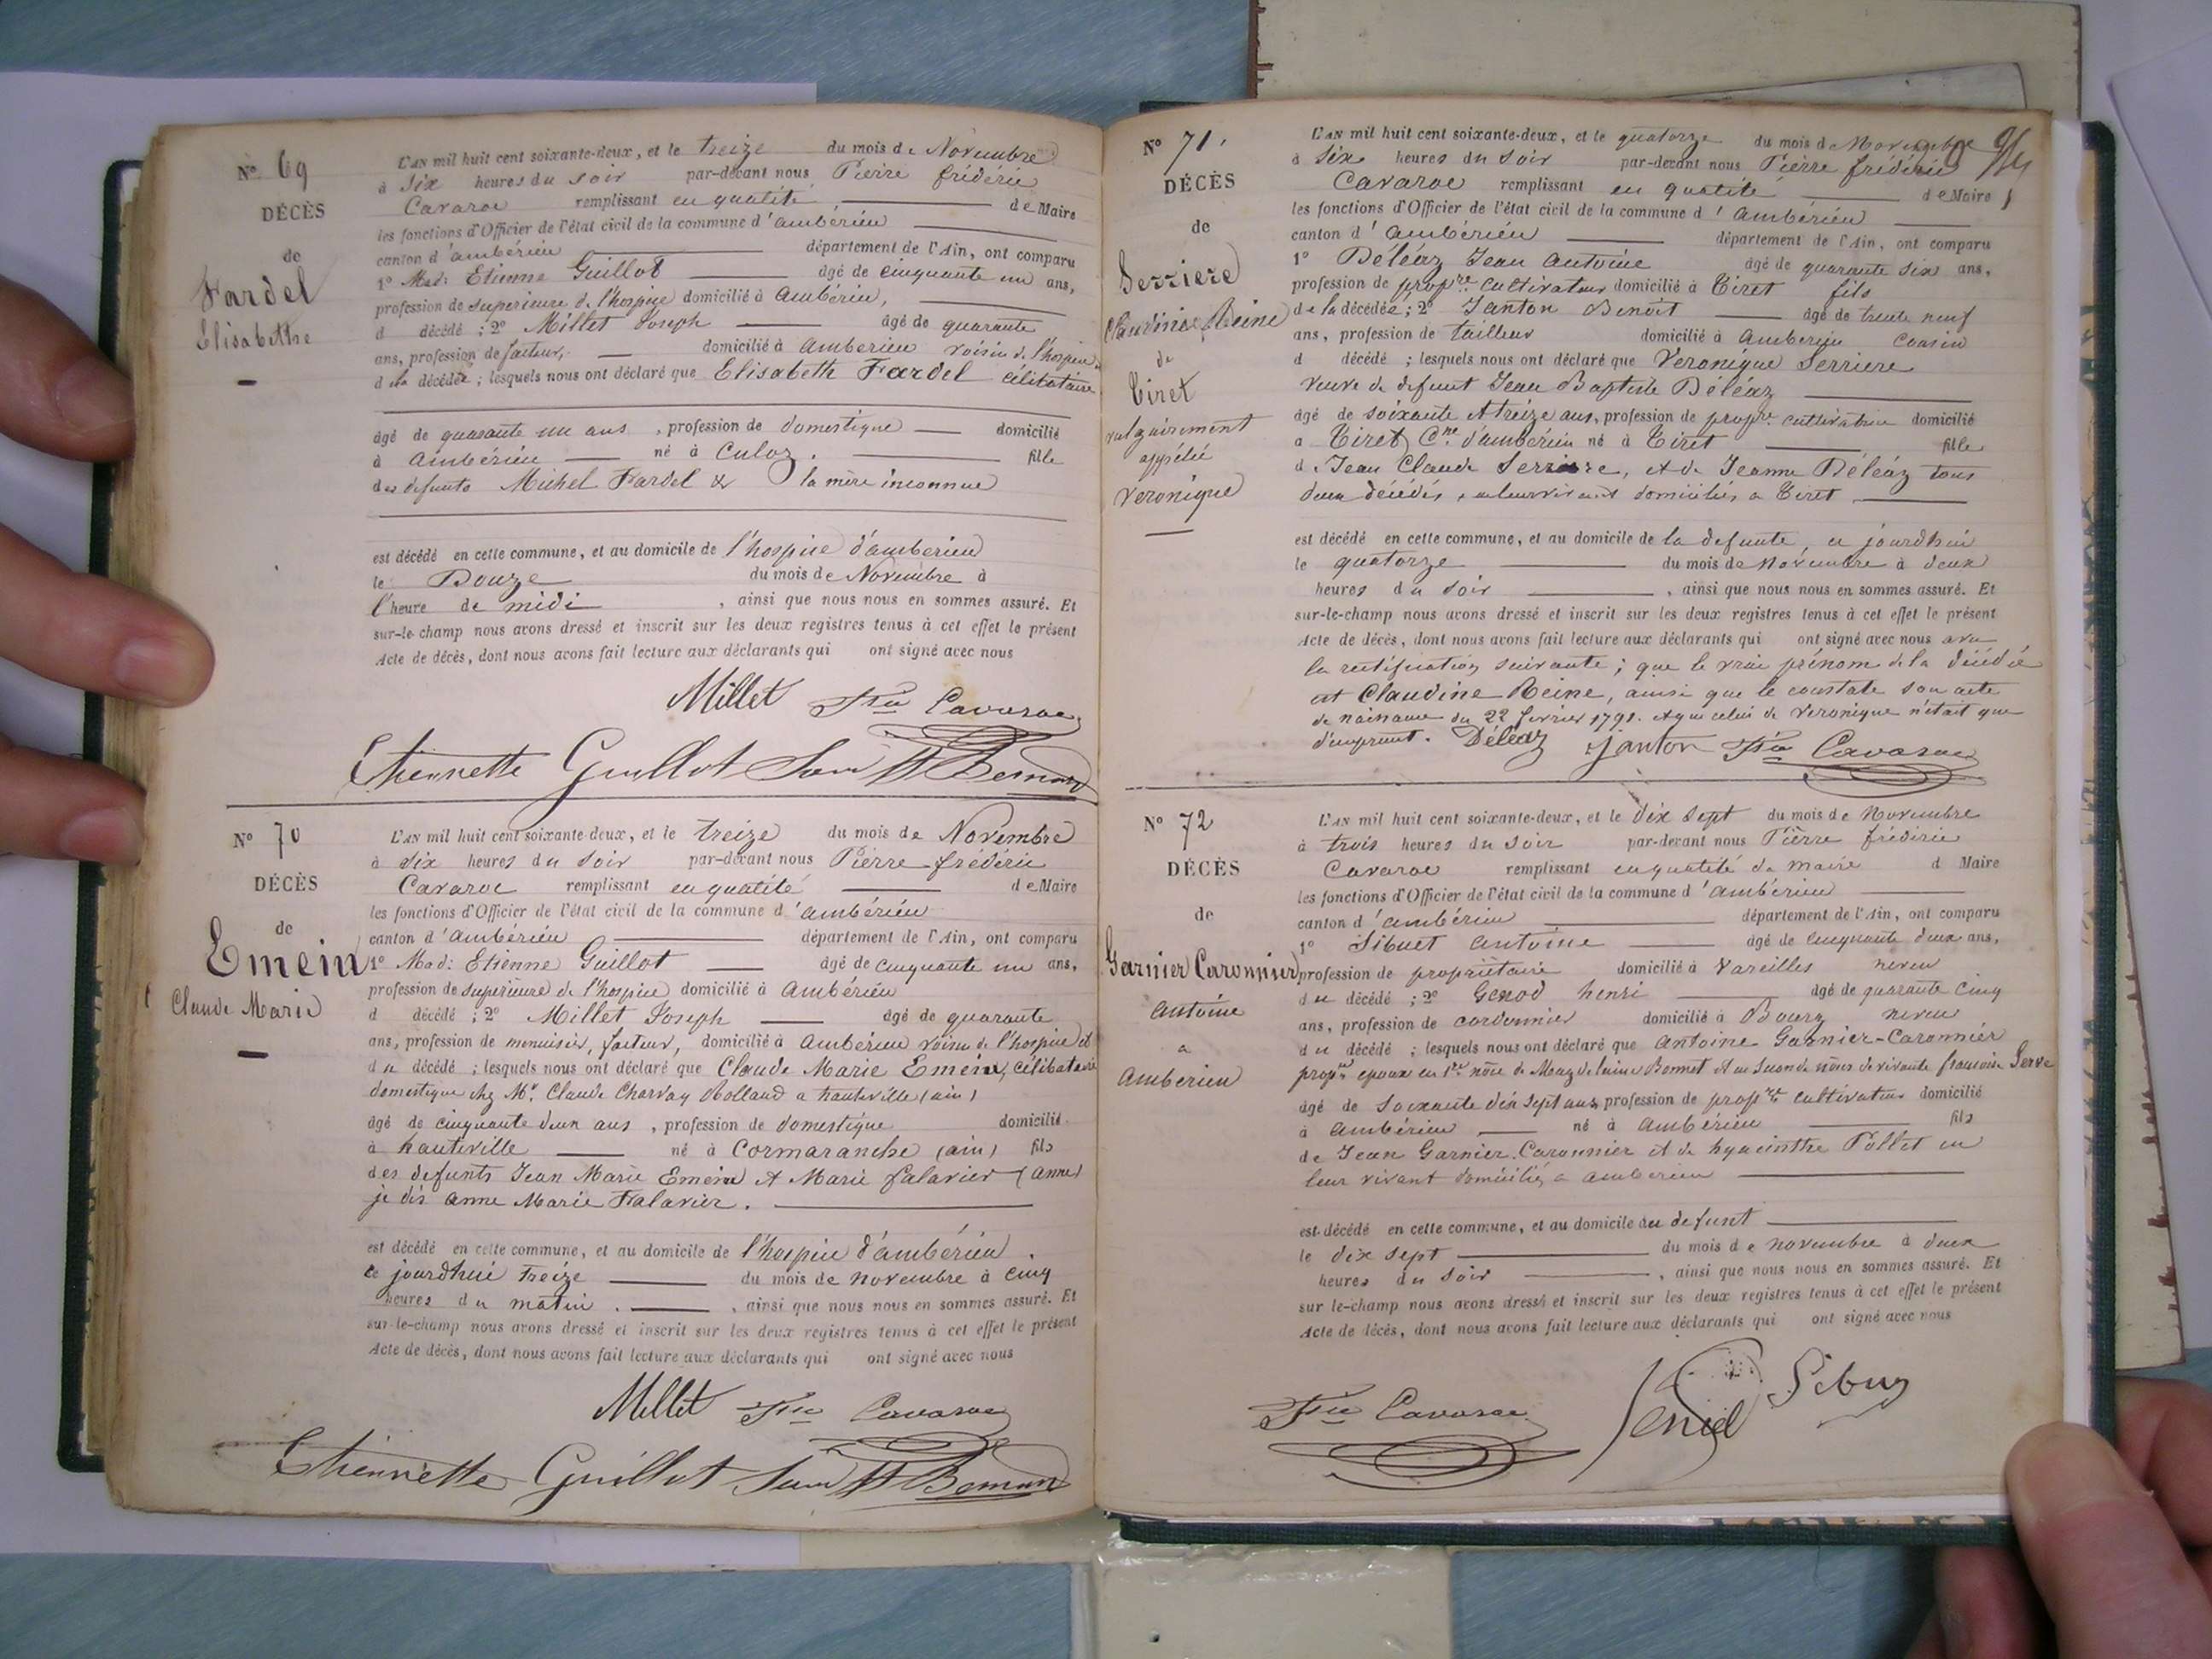 N° 69
DÉCÈS
de
Fardel
Elisabethe
L'AN mil huit cent soixante-deux, et le treize du mois de Novembre
à Six heures du soir par-devant nous Pierre frédéric
Cavaroc remplissant en qualité de Maire
les fonctions d'Officier de l'état civil de la commune d'ambérieu
canton d'ambérieu département de l'Ain, ont comparu
1° Mad: Etienne Guillot âgé de cinquante un ans,
profession de superieure de l'hospice domicilié à Ambérieu,
d décédé ; 2° Millet Joseph âgé de quarante
ans, profession de facteur, domicilié à Amberieu voisin de l'hospice
de la décédée ; lesquels nous ont déclaré que Elisabeth Fardel célibataire
âgé de quarante un ans , profession de domestique domicilié
à ambérieu né à Culoz . fille
des defunts Michel Fardel & la mère inconnue
est décédé en cette commune, et au domicile de l'hospice d'amberieu
le Douze du mois de Novembre à
l'heure de midi , ainsi que nous nous en sommes assuré. Et
sur-le-champ nous avons dressé et inscrit sur les deux registres tenus à cet effet le présent
Acte de décès, dont nous avons fait lecture aux déclarants qui ont signé avec nous
Millet Fric Cavaroc
Etiennette Guillot Sœur St Bernard
N° 70
DÉCÈS
de
Emein
Claude Marie
L'AN mil huit cent soixante-deux, et le treize du mois de Novembre
à six heures du soir par-devant nous Pierre frederic
Cavaroc remplissant en qualité de Maire
les fonctions d'Officier de l'état civil de la commune d'ambérieu
canton d'ambérieu département de l'Ain, ont comparu
1° Mad: Etienne Guillot âgé de cinquante un ans,
profession de superieure de l'hospice domicilié à Ambérieu
d décédé ; 2° Millet Joseph âgé de quarante
ans, profession de menuisier, facteur, domicilié à Ambérieu voisin de l'hospice et
du décédé ; lesquels nous ont déclaré que Claude Marie Emein, célibataire
domestique chez Mr. Claude Charvay Rolland a hauteville (ain)
âgé de cinquante deux ans , profession de domestique domicilié
à hauteville né à Cormaranche (ain) fils
des defunts Jean Marie Emein et Marie falavier (anne)
je dis anne Marie Falavier .
est décédé en cette commune, et au domicile de l'hospice d'ambérieu .
ce jourdhui treize du mois de novembre à cinq
heures du matin . , ainsi que nous nous en sommes assuré. Et
sur-le-champ nous avons dressé et inscrit sur les deux registres tenus à cet effet le présent
Acte de décès, dont nous avons fait lecture aux déclarants qui ont signé avec nous
Millet Fric Cavaroc
Etiennette Guillot Sœur St Bernard
N° 71
DÉCÈS
de
Serriere
Claudine Reine
de
Tiret
vulgairement
appélée
Veronique
L'AN mil huit cent soixante-deux, et le quatorze du mois de Novembre
à six heures du soir par-devant nous Pierre frédéric
Cavaroc remplissant en qualité de Maire
les fonctions d'Officier de l'état civil de la commune d'Ambérieu
canton d'ambérieu département de l'Ain, ont comparu
1° Déléaz Jean Antoine âgé de quarante six ans,
profession de propre cultivateur domicilié à Tiret fils
de la décédée ; 2° Janton Benoit âgé de trente neuf
ans, profession de tailleur domicilié à Amberieu cousin
d décédé ; lesquels nous ont déclaré que Veronique Serriere
veuve de defunt Jean Baptiste Déléaz
âgé de soixante et treize ans, profession de propre cultivatrice domicilié
à Tiret Cne d'ambérieu né à Tiret fille
de Jean Claude Serriere, et de Jeanne Déléaz tous
deux décédés, en leur vivant domiciliés a Tiret
est décédé en cette commune, et au domicile de la defunte, ce jourdhui
le quatorze du mois de Novembre à deux
heures du soir , ainsi que nous nous en sommes assuré. Et
sur-le-champ nous avons dressé et inscrit sur les deux registres tenus à cet effet le présent
Acte de décès, dont nous avons fait lecture aux déclarants qui ont signé avec nous avec
la rectification suivante ; que le vrai prénom de la décédée
est Claudine Reine, ainsi que le constate son acte
de naissance du 22 fevrier 1791. et que celui de Veronique n'était que
d'emprunt. Déléaz Janton Fric Cavaroc
N° 72
DÉCÈS
de
Garnier Caronnier
antoine
a
Amberieu
L'AN mil huit cent soixante-deux, et le dix sept du mois de Novembre
à trois heures du soir par-devant nous Pierre frédéric
Cavaroc remplissant en qualité de maire d Maire
les fonctions d'Officier de l'état civil de la commune d'ambérieu
canton d'ambérieu département de l'Ain, ont comparu
1° Sibuet antoine âgé de cinquante deux ans,
profession de propriétaire domicilié à Vareilles neveu
du décédé ; 2° Genod henri âgé de quarante cinq
ans, profession de cordonnier domicilié à Bourg neveu
du décédé ; lesquels nous ont déclaré que Antoine Garnier-Caronnier
propre epoux en 1re nôce de Magdelaine Bonnet et en seconde nôces de vivante francoise Serve
âgé de soixante dix sept ans, profession de propre cultivateur domicilié
à Ambérieu né à Ambérieu fils
de Jean Garnier Caronnier et de hyacinthe Pollet en
leur vivant domiciliés a amberieu
est décédé en cette commune, et au domicile du defunt
le dix sept du mois de novembre à deux
heures du soir , ainsi que nous nous en sommes assuré. Et
sur le-champ nous avons dressé et inscrit sur les deux registres tenus à cet effet le présent
Acte de décès, dont nous avons fait lecture aux déclarants qui ont signé avec nous
Fric Cavaroc